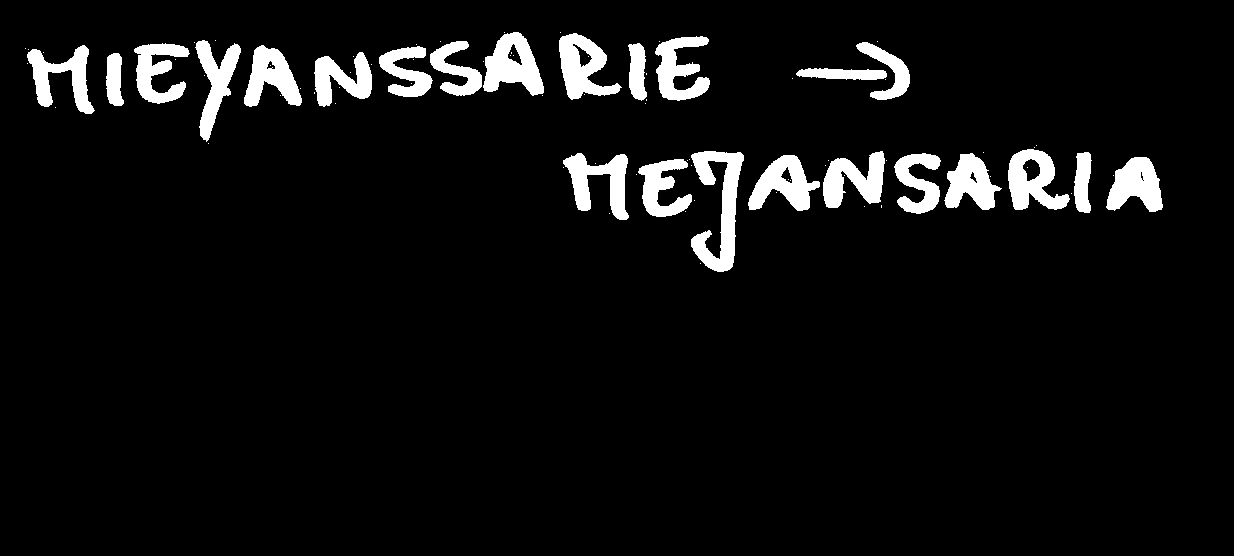 MIEYANSSARIE →
MEJANSARIA